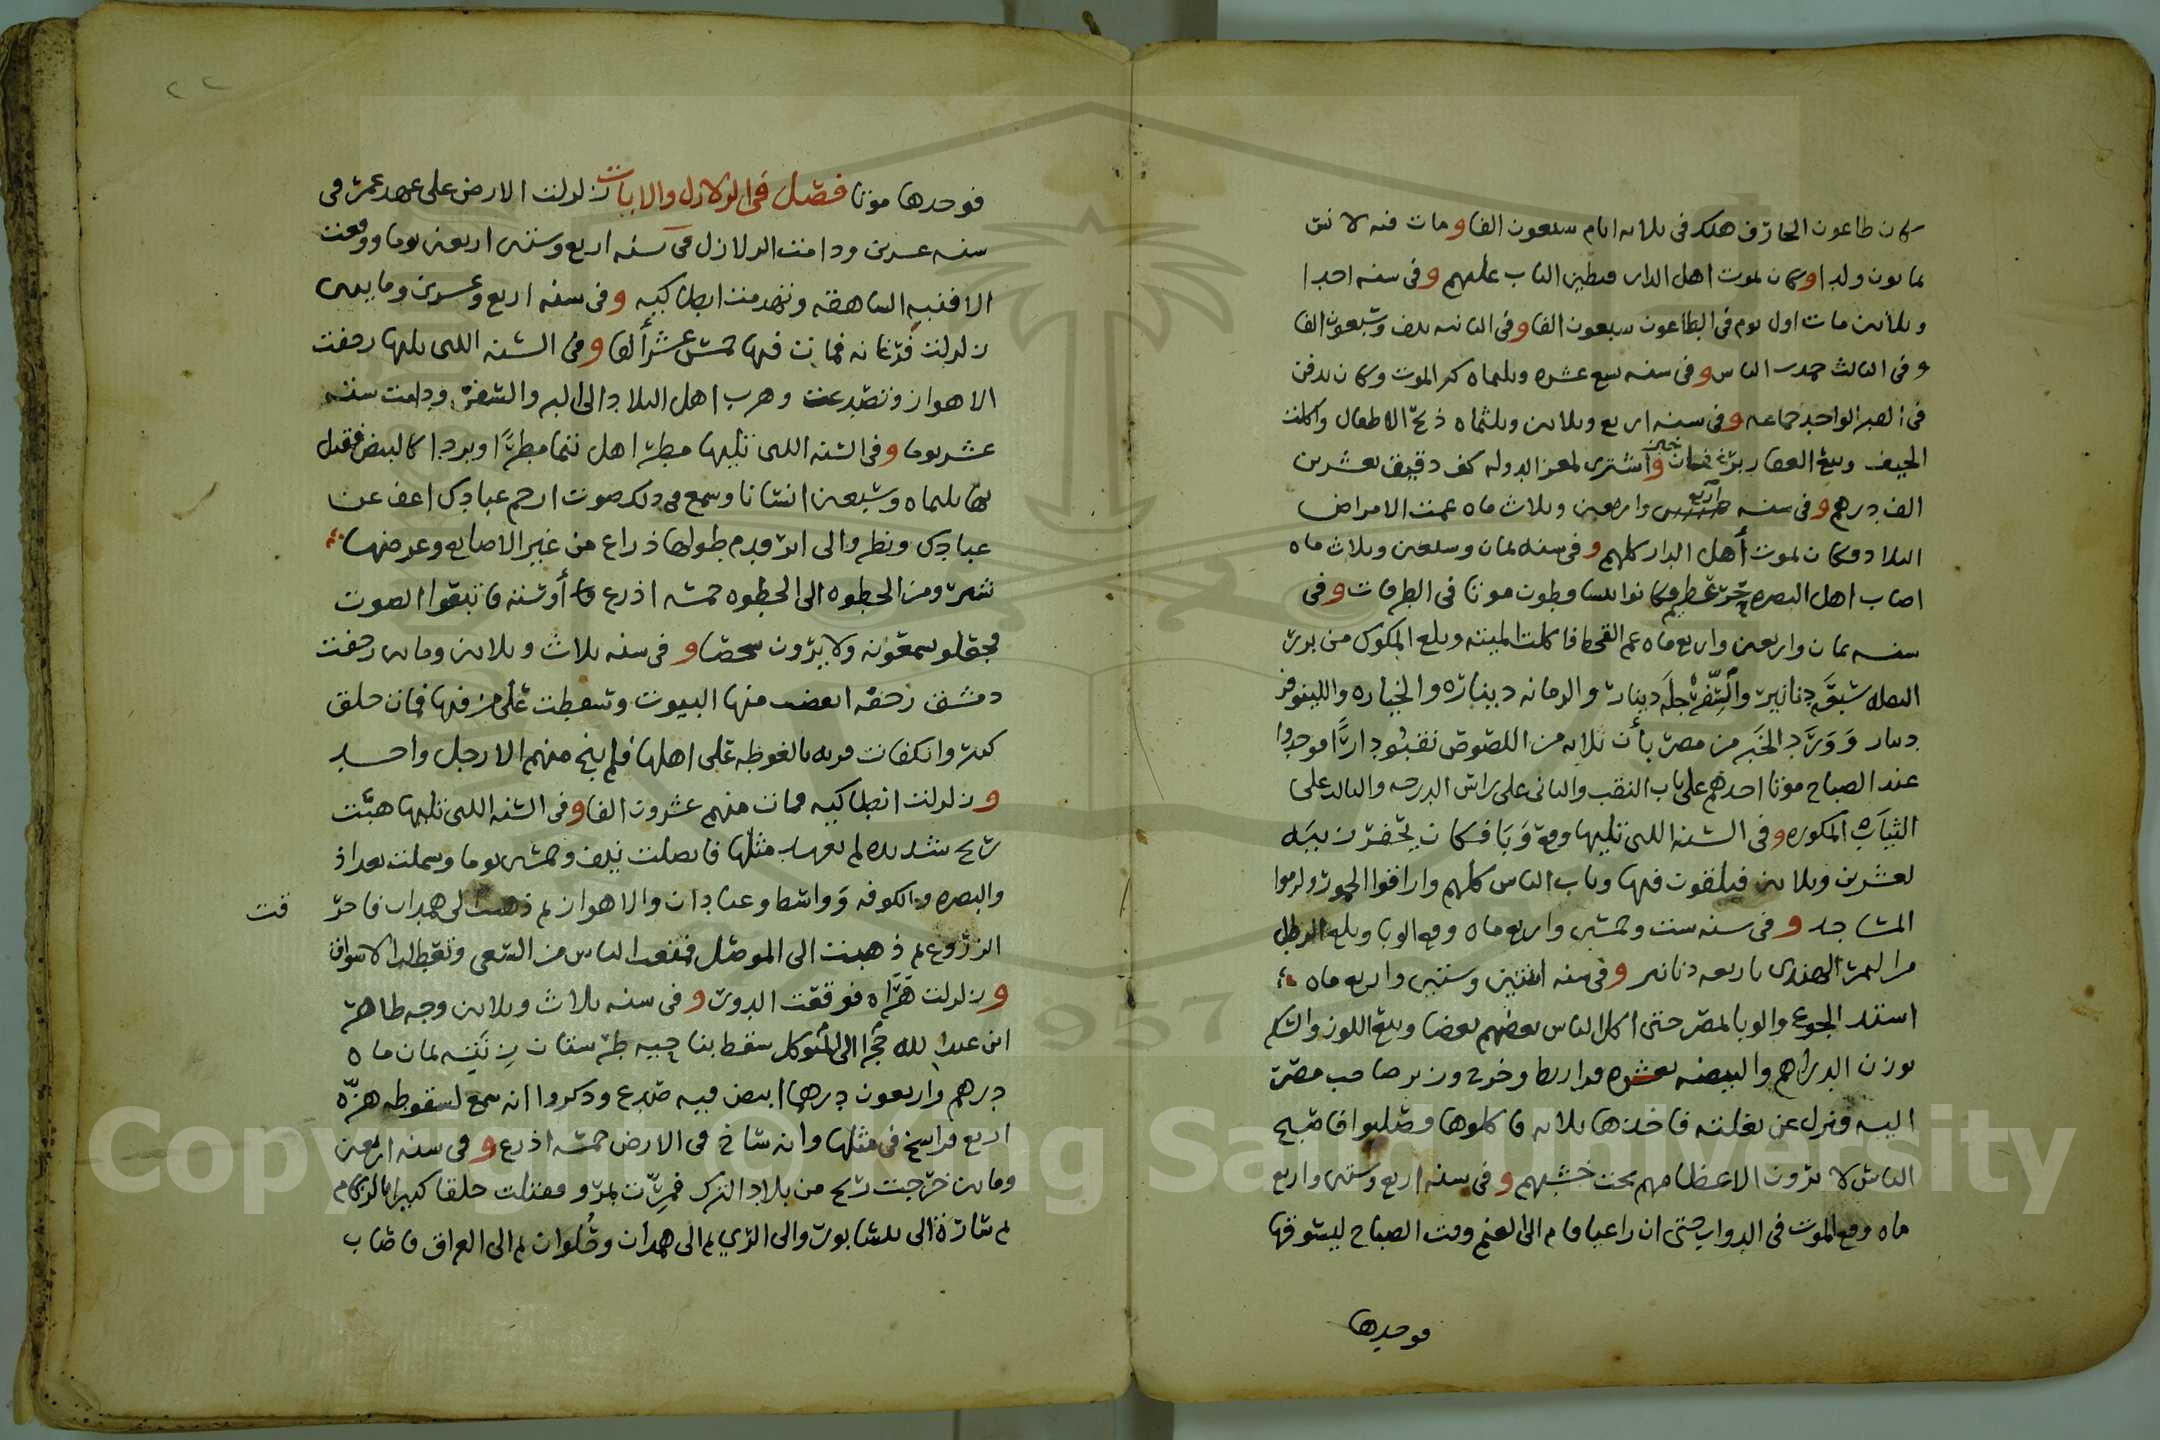 كان طاعون الجارف هلك في ثلاثة ايام سبعون الفا ومات فيه لانس
ثمانون ولدا وكان يموت اهل الدار فيطين الباب عليهم وفي سنه احدا
وثلاثين مات اول يوم في الطاعون سبعون الفا وفي الثانيه نيف وسبعون الفا
وفي الثالث خمدت الناس وفي سنه تسع عشره وثلثماه كثر الموت وكان يدفن
في القبر الواحد جماعه وفي سنه اربع وثلاثين وثلثماه ذبح الاطفال واكلت
الجيف وبيع العقار برغفان خبز واشترى لمعز الدوله كف دقيق بعشرين
الف درهم وفي سنه اربع واربعين وثلاث ماه عمت الامراض
البلاد وكان يموت أهل الدار كلهم وفي سنه ثمان وسبعين وثلاث ماه
اصاب اهل البصره حر عظيم وكانوا يتساقطون موتا في الطرقات وفي
سنه ثمان واربعين واربع ماه عم القحط فاكلت الميته وبلغ المكوك من بزر
البقله سبعة دنانير والسفرجله دينار والرمانه دينار والخياره واللينوفر
دينار وَوَرَد الخبر من مصر بأن ثلاثه من اللصوص نقبوا دارًا فوجدوا
عند الصباح موتا احدهم على باب النقب والثاني على راس الدرجه والثالث على
الثياب المكوره وفي السنه اللتي تليها وقع وَبَا فكان تحفر زبيه
لعشرين وثلاثين فيلقون فيها وتاب الناس كلهم واراقوا الخمور ولزموا
المساجد وفي سنه ست وخمسين واربع ماه وقع الوبا وبلغ الرطل
من التمر الهندي باربعه دنانير وفي سنه اثنتين وستين واربع ماه
اشتد الجوع والوبا بمصر حتى اكل الناس بعضهم بعضا وبيع اللوز والسكر
بوزن الدراهم والبيضه بعشره قراريط وخرج وزير صاحب مصر
اليه فنزل عن بغلته فاخذها ثلاثه فاكلوها فصلبوا فاصبح
الناس لا يرون الا عظامهم تحت خشبهم وفي سنه اربع وستين واربع
ماه وقع الموت في الدواب حتى ان راعيا قام الى الغنم وقت الصباح ليسوقها
فوجدها
٢٢
فوجدها موتا فصل في الزلازل والايات زلزلت الارض على عهد عمر في
سنه عشرين ودامت الزلازل في سنه اربع وستين اربعين يوما ووقعت
الافنيه الشاهقه وتهدمت انطاكيه وفي سنه اربع وعشرين ومايتين
زلزلت فرغانه فمات فيها خمس عشر ألفا وفي السنه اللتي تليها رجفت
الاهواز وتصدعت وهرب اهل البلاد الى البر والسفن ودامت سته
عشر يوما وفي السنه اللتي تليها مطر اهل تيما مطرًا وبردا كالبيض فقتل
بها ثلثماه وسبعين انسانا وسمع في ذلك صوت ارحم عبادك اعف عن
عبادك ونظروا الى اثر قدم طولها ذراع من غير الاصابع وعرضها
شبر ومن الخطوه الى الخطوه خمسه اذرع أو سته فاتبعوا الصوت
فجعلو يسمعونه ولا يرون شخصا وفي سنه ثلاث وثلاثين ومايتين رجفت
دمشق رجفه انقضت منها البيوت وسقطت على من فيها فمات خلق
كثير وانكفات قريه بالغوطه على اهلها فلم ينج منهم الا رجل واحد
وزلزلت انطاكيه فمات منهم عشرون الفا وفي السنه اللتي تليها هبت
ريح شديده لم يعهد مثلها فاتصلت نيف وخمسين يوما وشملت بغداذ
والبصره والكوفه وَواسط وعبادان والاهواز ثم ذهبت الى همدان فاحر
قت
الزروع ثم ذهبت الى الموصل فمنعت الناس من السعي وتعطلت الاسواق
وزلزلت هراه فوقعت الدور وفي سنه ثلاث وثلاثين وجه طاهر
ابن عبد الله حجرا الى المتوكل سقط بناحيه طبرستان زنته ثمان ماه
درهم واربعون درهما ابيض فيه صدع وذكروا انه سمع لسقوطه هزّه
اربع فراسخ في مثلها وانه ساخ في الارض خمسه اذرع وفي سنه اربعين
ومايتين خرجت ريح من بلاد الترك فمرّت بمرو فقتلت خلقا كثيرا بالزكام
ثم سارت الى نيسابور والى الري ثم الى همدان وحُلوان ثم الى العراق فاصاب